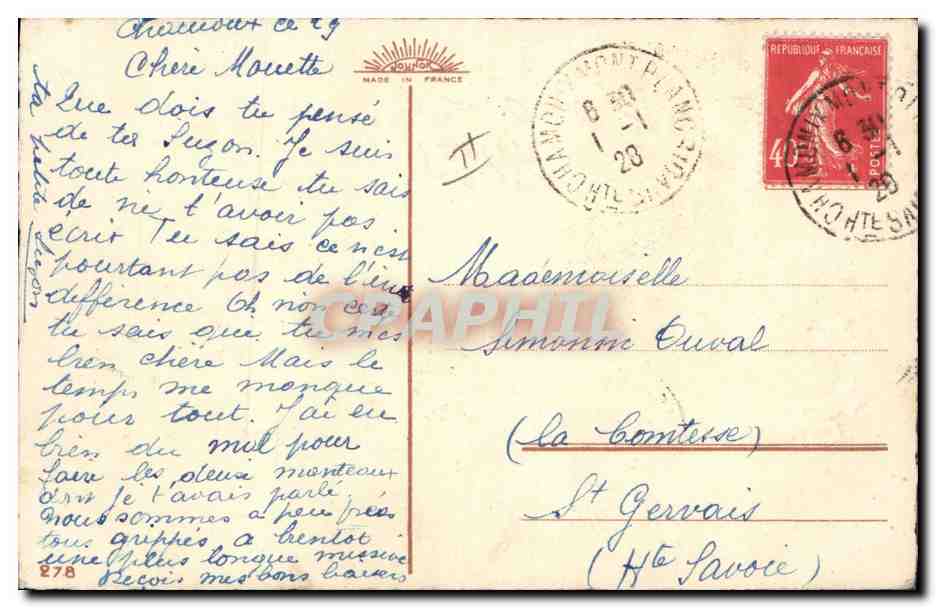 Chamonix ce 29
Chère Mouette
Que dois tu pensé
de ta Suzon. Je suis
toute honteuse tu sais
de ne t'avoir pas
écrit Tu sais ce n'est
pourtant pas de l'in
différence Oh non cela
tu sais que tu m'es
bien chère Mais le
temps me manque
pour tout. J'ai eu
bien du mal pour
faire les deux manteaux
dont je t'avais parlé.
Nous sommes a peu près
tous grippés a bientot
une plus longue missive
Reçois mes bons baisers
ta petite Suzon
278
MADE IN FRANCE
II
CHAMONIX MONT BLANC
8 30
1 - 1
28
REPUBLIQUE FRANÇAISE
40
POSTES
CHAMONIX M
8 30
1
28
HTE SA
Mademoiselle
Simonin Duval
(la Comtesse)
St Gervais
(Hte Savoie)
CPAPHIL